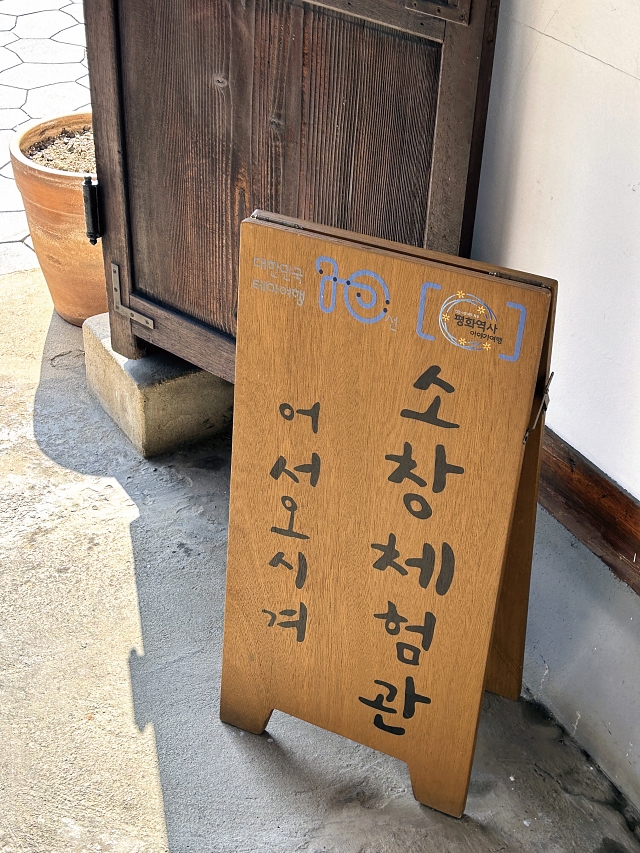 대한민국
테마여행
10선
평화역사
이야기여행
소창체험관
어서오시겨